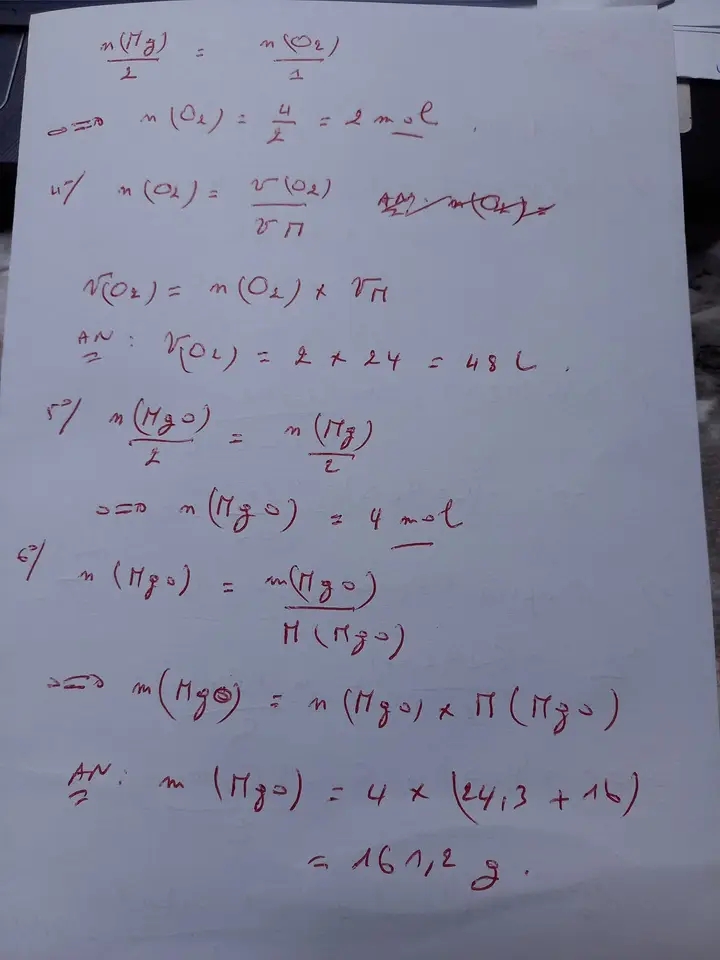 n(Mg)/2 = n(O2)/1
<=> n(O2) = 4/2 = 2 mol.
4°/ n(O2) = V(O2)/VM AN: n(O2) =
V(O2) = n(O2) × VM
AN: V(O2) = 2 × 24 = 48 L.
5°/ n(MgO)/2 = n(Mg)/2
<=> n(MgO) = 4 mol
6°/ n(MgO) = m(MgO)/M(MgO)
<=> m(MgO) = n(MgO) × M(MgO)
AN: m(MgO) = 4 × (24,3 + 16)
= 161,2 g.